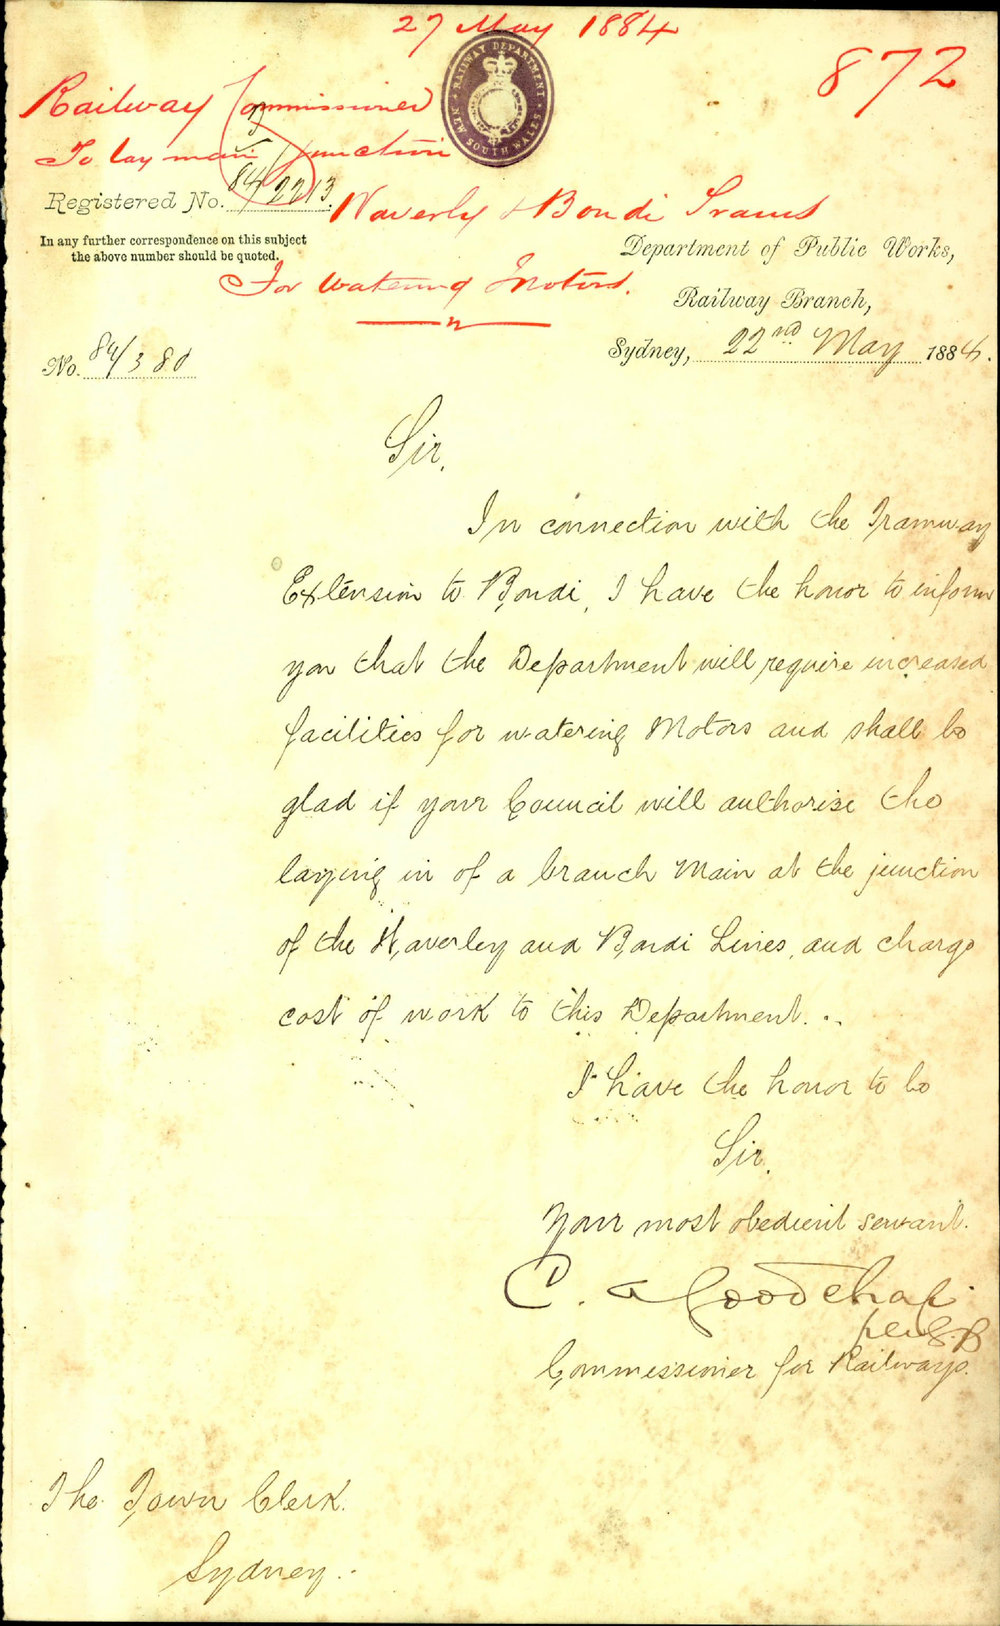 27 May 1884
872
RAILWAY DEPARTMENT
NEW SOUTH WALES
Railway Commissioner
To lay main junction
Registered No. 84/2213.
Waverly & Bondi Trams
In any further correspondence on this subject
the above number should be quoted.
For watering Motors.
Department of Public Works,
Railway Branch,
Sydney, 22nd May 1884.
No. 84/380
Sir,
In connection with the Tramway
Extension to Bondi, I have the honor to inform
you that the Department will require increased
facilities for watering Motors and shall be
glad if your Council will authorise the
laying in of a branch Main at the junction
of the Waverley and Bondi Lines, and charge
cost of work to this Department.
I have the honor to be
Sir,
Your most obedient servant.
C. A. Goodchap
per
Commissioner for Railways.
The Town Clerk.
Sydney.